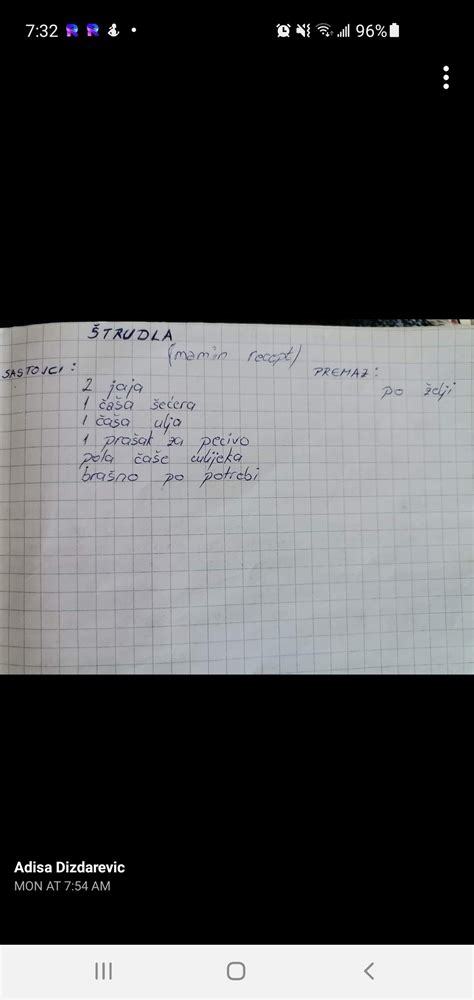 7:32
96%
ŠTRUDLA
(mamin recept)
SASTOJCI:
PREMAZ:
po želji
2 jaja
1 čaša šećera
1 čaša ulja
1 prašak za pecivo
pola čaše mlijeka
brašno po potrebi
Adisa Dizdarevic
MON AT 7:54 AM